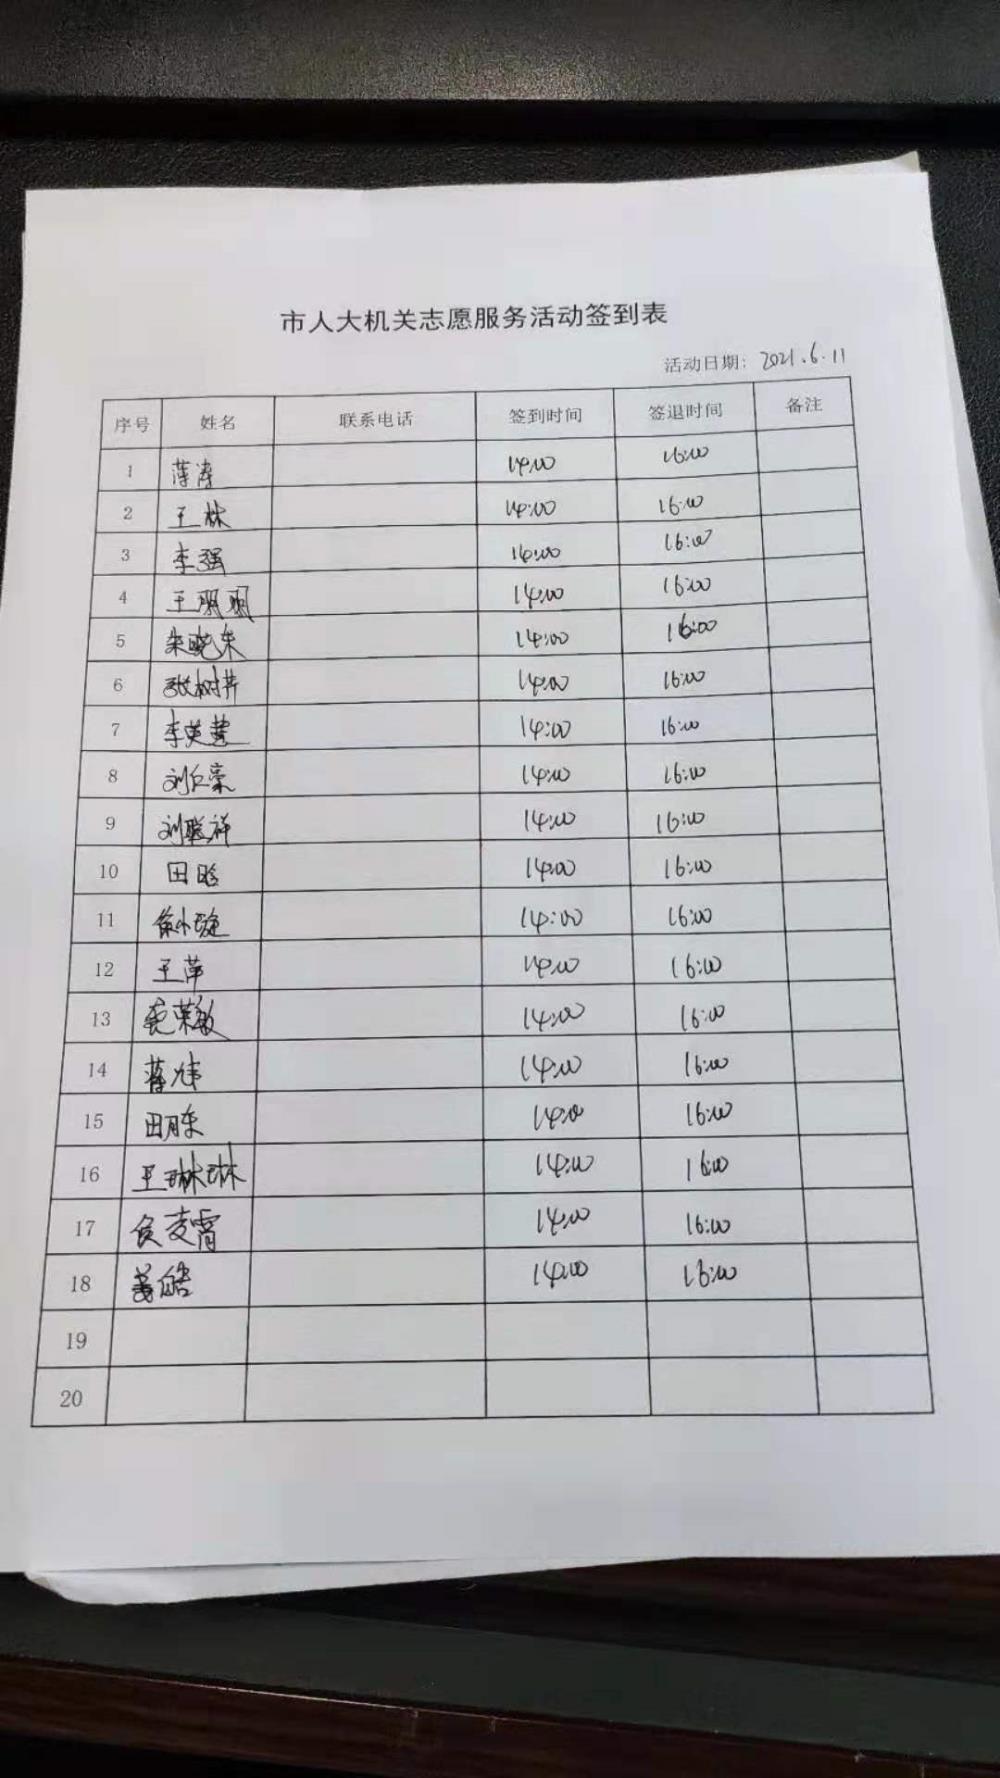 市人大机关志愿服务活动签到表
活动日期: 2021.6.11
序号 姓名 联系电话 签到时间 签退时间 备注
1 薄涛 14:00 16:00
2 王林 14:00 16:00
3 李强 14:00 16:00
4 王丽丽 14:00 16:00
5 朱晓东 14:00 16:00
6 张树芹 14:00 16:00
7 李英慧 14:00 16:00
8 刘仁豪 14:00 16:00
9 刘聪祥 14:00 16:00
10 田晗 14:00 16:00
11 徐小璇 14:00 16:00
12 王萍 14:00 16:00
13 荣敏 14:00 16:00
14 蒋炜 14:00 16:00
15 田月东 14:00 16:00
16 王琳琳 14:00 16:00
17 侯凌霄 14:00 16:00
18 姜皓 14:00 16:00
19
20